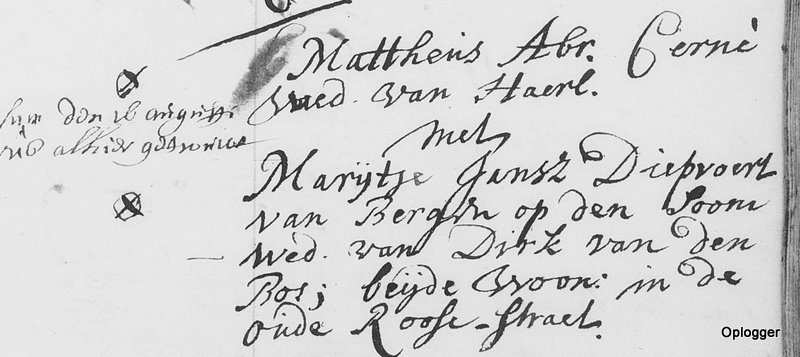 Mattheus Abr. Cernè
wed. van Haerl.
met
den 16 augusti
alhier getrouwt
Marijtje Jansz Diepvoert
van Bergen op den Soom
wed. van Dirk van den
Bos; beijde Woon: in de
oude Roose-straet.
Oplogger